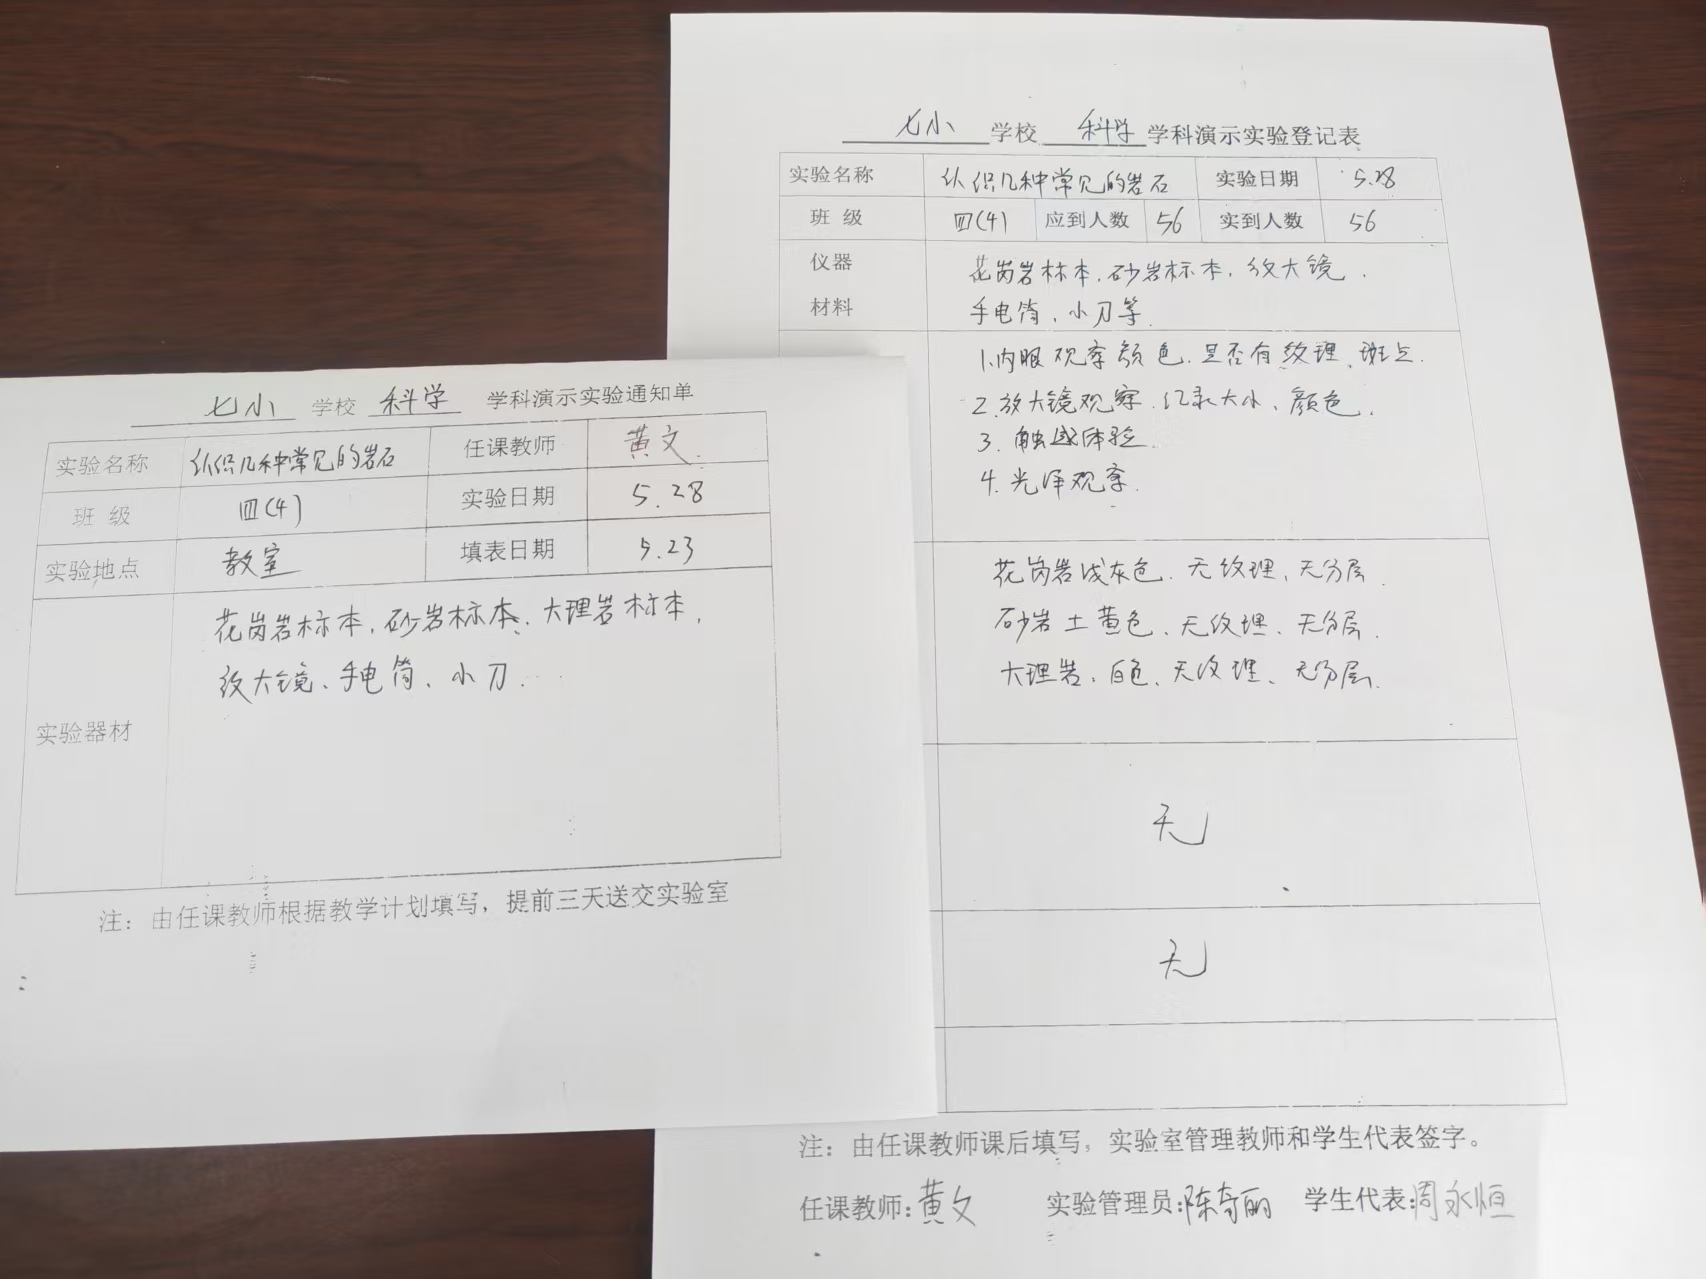 七小 学校 科学 学科演示实验通知单
实验名称 认识几种常见的岩石 任课教师 黄文
班 级 四(4) 实验日期 5.28
实验地点 教室 填表日期 5.23
实验器材 花岗岩标本,砂岩标本、大理岩标本,
放大镜、手电筒、小刀.
注：由任课教师根据教学计划填写，提前三天送交实验室
七小 学校 科学 学科演示实验登记表
实验名称 认识几种常见的岩石 实验日期 5.28
班 级 四(4) 应到人数 56 实到人数 56
仪器 花岗岩标本,砂岩标本,放大镜,
材料 手电筒、小刀等
1.肉眼观察颜色.是否有纹理、斑点
2.放大镜观察.记录大小、颜色.
3.触感体验
4.光泽观察.
花岗岩浅灰色.无纹理、无分层.
砂岩土黄色、无纹理、无分层.
大理岩:白色、无纹理、无分层.
无
无
注：由任课教师课后填写，实验室管理教师和学生代表签字。
任课教师:黄文 实验管理员:陈奇丽 学生代表:周永恒